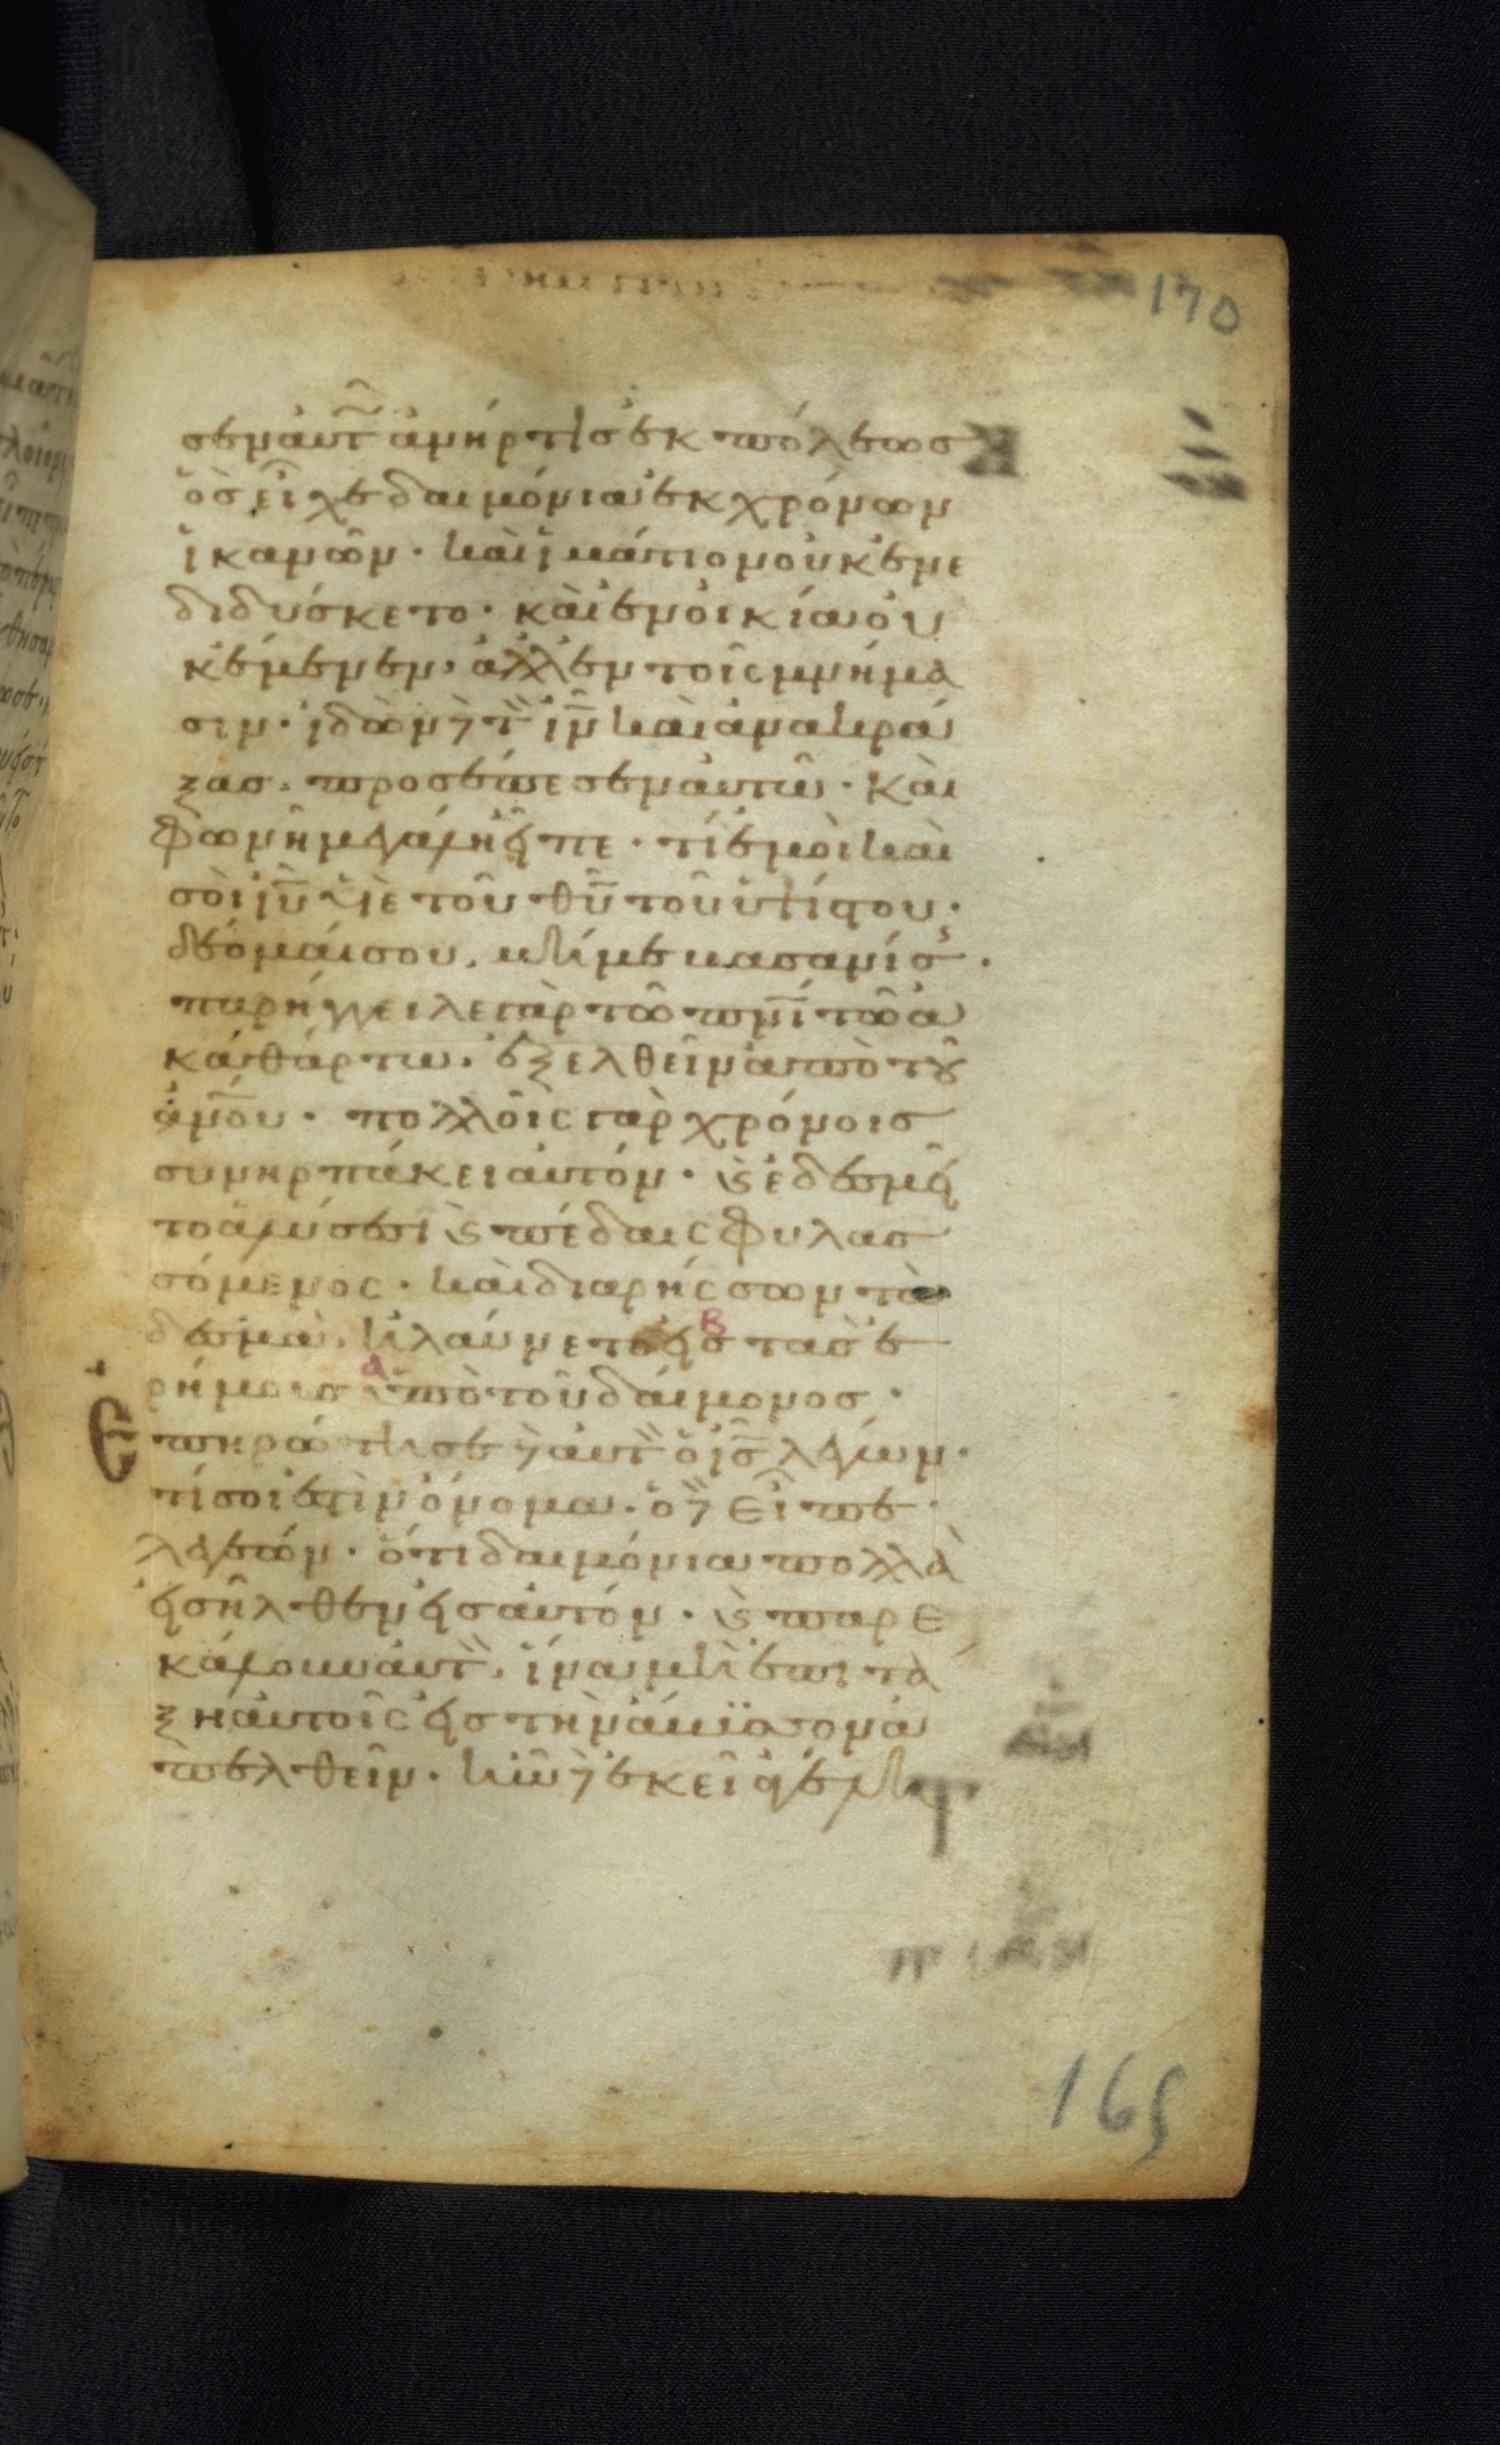 170
σεν αυτ῀ ἀνήρ τὶσ ἐκ πόλεωσ
ὃσ εἶχε δαιμόνια ἐκ χρόνων
ἱκανῶν · καὶ ἱμάτιον οὐκ ἐνε
διδύσκετο · καὶ ἐν οἰκία οὐ
κ ἔμενεν, ἀλλ ἐν τοῖς μνήμα
σιν · ἰδὼν δὲ τ῍ ἰ̅ν̅ καὶ ἀνακρά
ξασ, προσέπεσεν αὐτῶ · καὶ
φωνῆ μεγάλη εἶπε · τί ἐμοὶ καὶ
σοὶ ἰ̅υ̅ ὑιὲ τοῦ θ̅υ̅ τοῦ ὑψίστου ·
δέομαί σου, μή με βασανίσῃς ·
παρήγγειλε γὰρ τῶ π̅ν̅ι̅ τῶ ἀ
καθάρτω, ἐξελθεῖν ἀπὸ τοῦ
ἀ̅ν̅ο̅υ̅ · πολλοῖς γὰρ χρόνοισ
συνηρπάκει αὐτόν · κ̀ ἐδεσμεῖ
το ἁλύσεσι κ̀ πέδαις φυλασ
σόμενος · καὶ διαρήσσων τὰ
δεσμὰ, ἠλαύνετο εἰσ τὰσ ἐ
ρήμουσ ὑπὸ τοῦ δαίμονοσ ·
Ἐπηρώτησε δὲ αὐτ῍ ὁ ἰ̅ς̅ λέγων ·
τί σοι ἐστὶν ὄνομα · ὁ δὲ εἶπε ·
λεγεών · ὅτι δαιμόνια πολλὰ
εἰσῆλθεν εἰσ αὐτόν · κ̀ παρε
κάλουν αὐτ῍, ἵνα μὴ ἐπιτά
ξη αὐτοῖς εἰσ τὴν ἄβυσσον ἀ
πελθεῖν · ἦν δὲ ἐκεῖ ἀγέλη
165